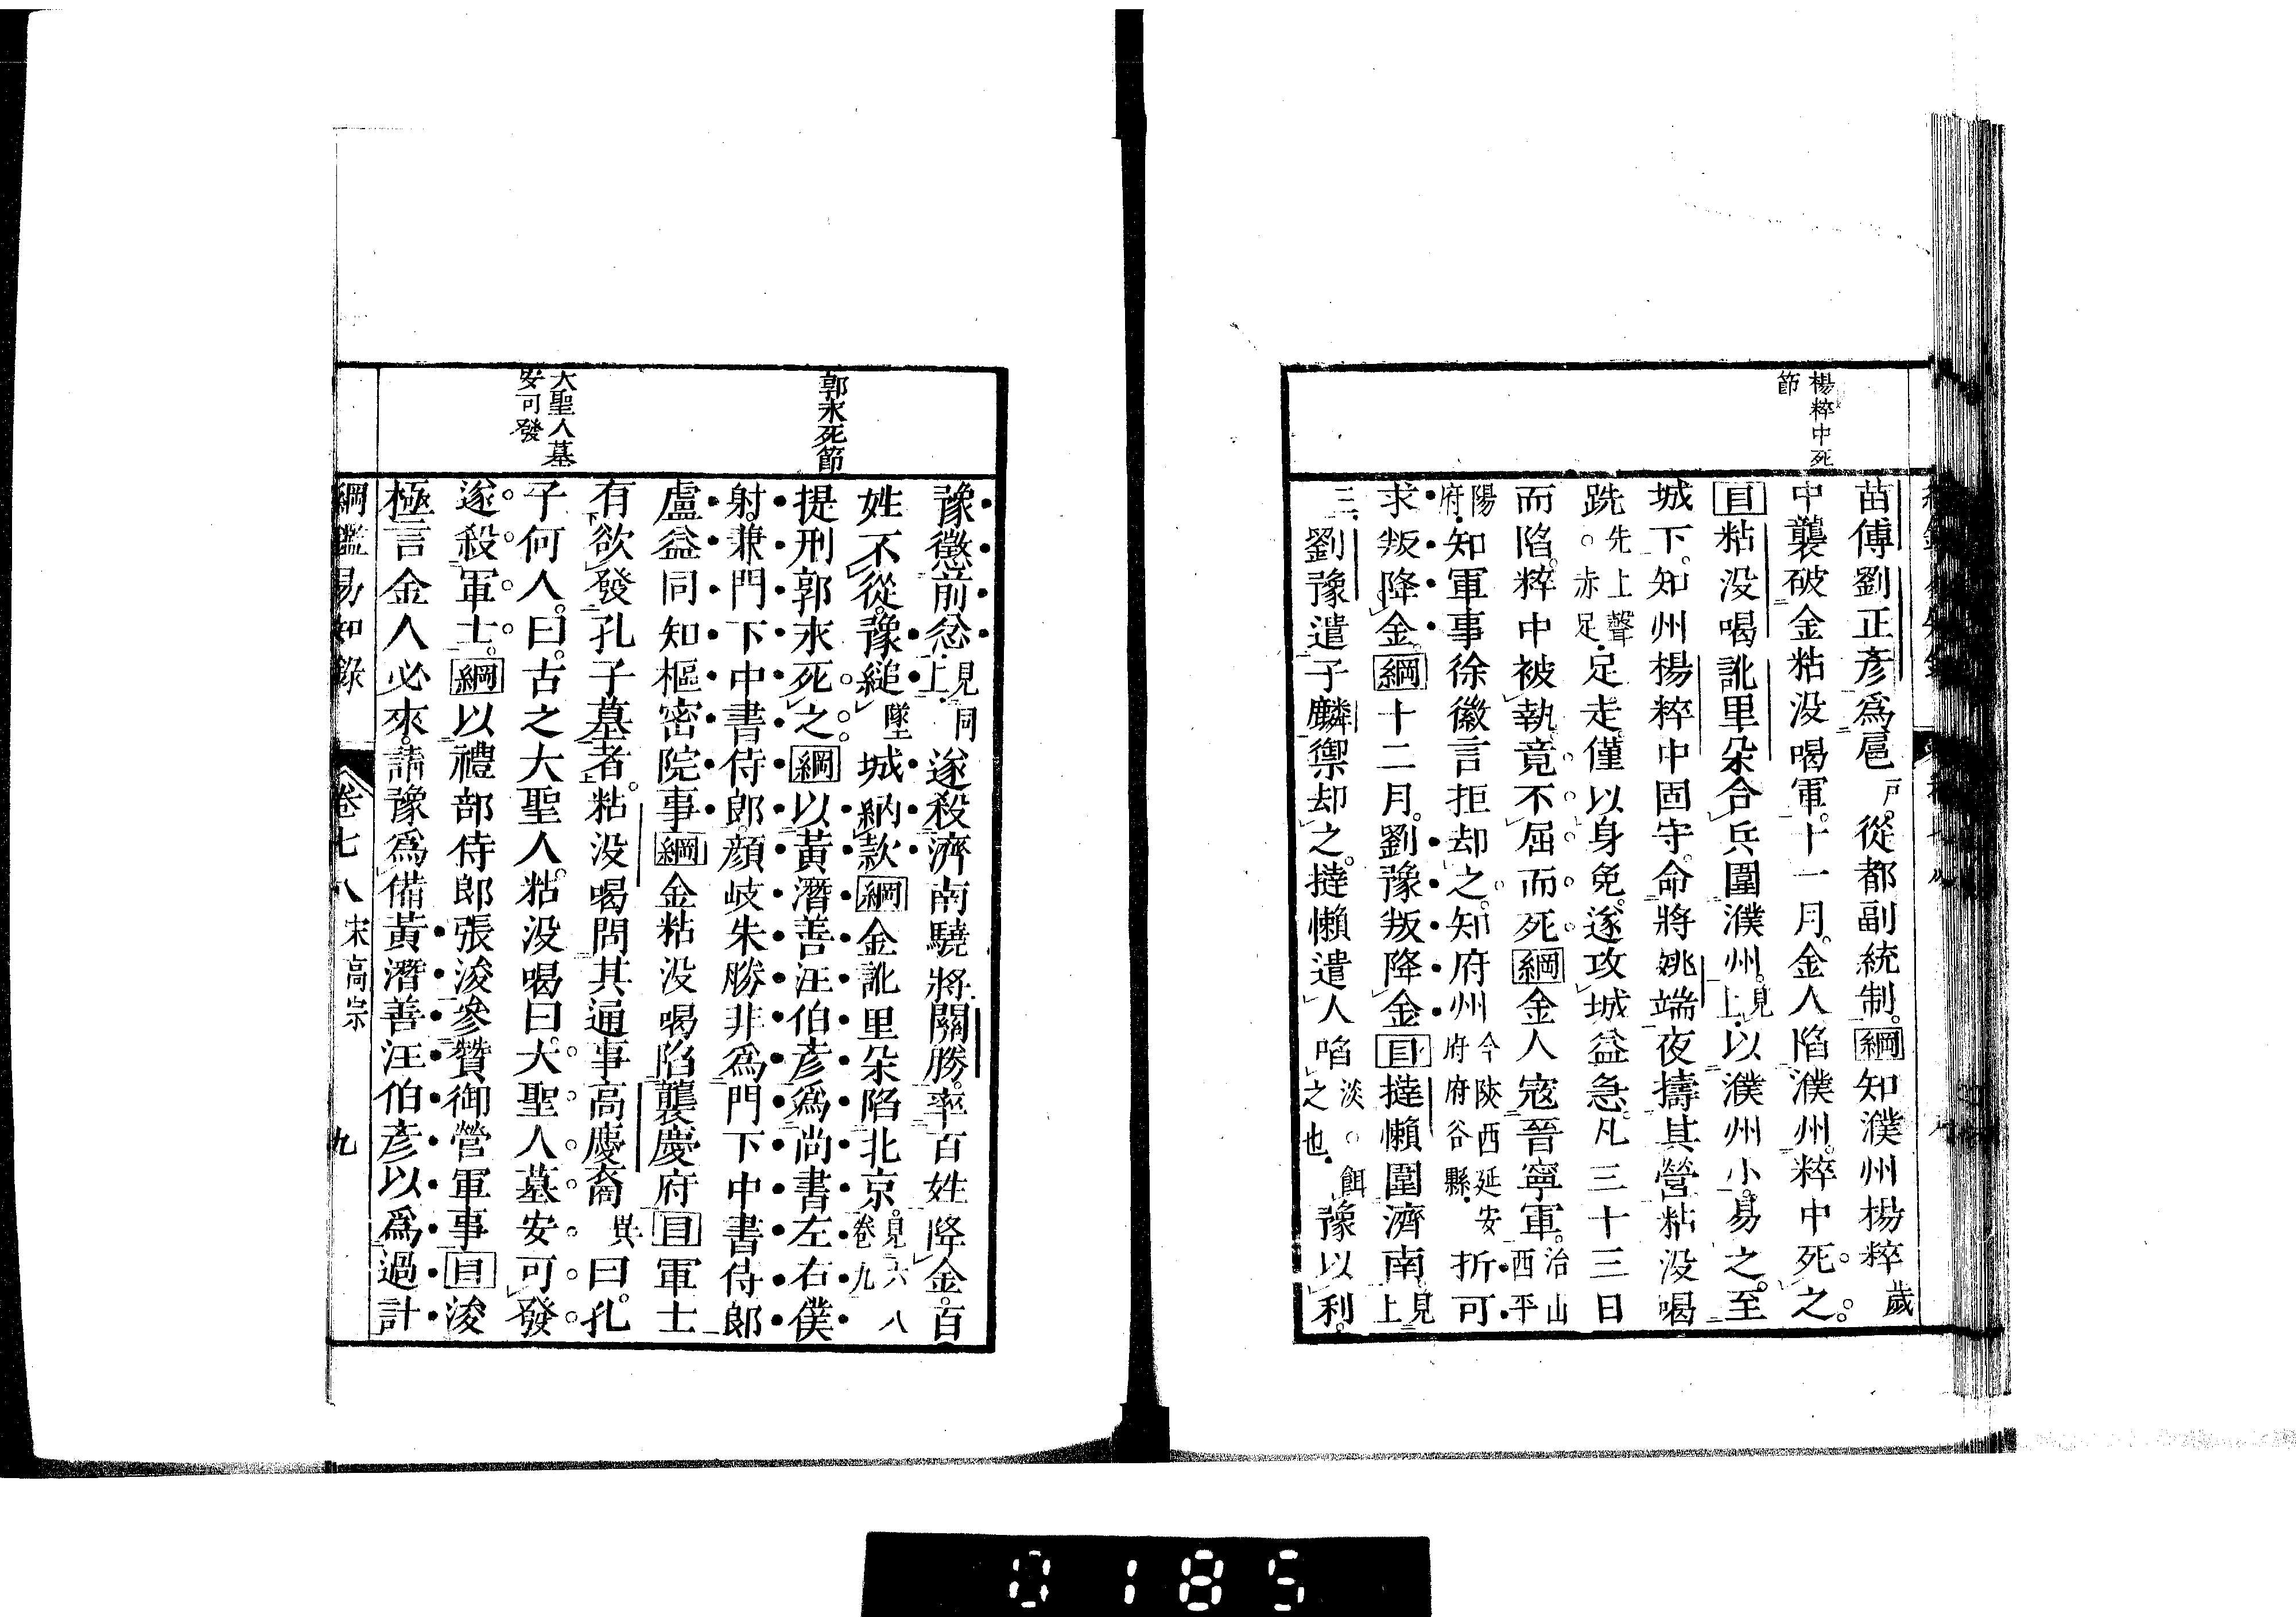 楊粹中死
節
苗傅劉正彥爲扈戸從都副統制綱知濮州楊粹歲
中襲破金粘没喝軍十一月金人陷濮州粹中死之
目粘没喝訛里朶合兵圍濮州見上以濮州小易之至
城下知州楊粹中固守命將姚端夜擣其營粘没喝
跣先上聲赤足足走僅以身免遂攻城益急凡三十三日
而陷粹中被執竟不屈而死綱金人寇晉寧軍治山西平
陽府知軍事徐徽言拒却之知府州今陝西延安府府谷縣折可
求叛降金綱十二月劉豫叛降金目撻懶圍濟南見上
三劉豫遣子麟禦却之撻懶遣人啗淡餌之也豫以利
郭永死節
大聖人墓
安可發
豫懲前忿見上同遂殺濟南驍將關勝率百姓降金百
姓不從豫縋墜城納款綱金訛里朶陷北京見六八卷九
提刑郭永死之綱以黃潛善汪伯彥爲尚書左右僕
射兼門下中書侍郎顔岐朱勝非爲門下中書侍郎
盧益同知樞密院事綱金粘没喝陷襲慶府目軍士
有欲發孔子墓者粘没喝問其通事高慶裔異曰孔
子何人曰古之大聖人粘没喝曰大聖人墓安可發
遂殺軍士綱以禮部侍郎張浚參贊御營軍事目浚
極言金人必來請豫爲備黃潛善汪伯彥以爲過計
綱鑑易知錄 卷七八 宋高宗 九
0185